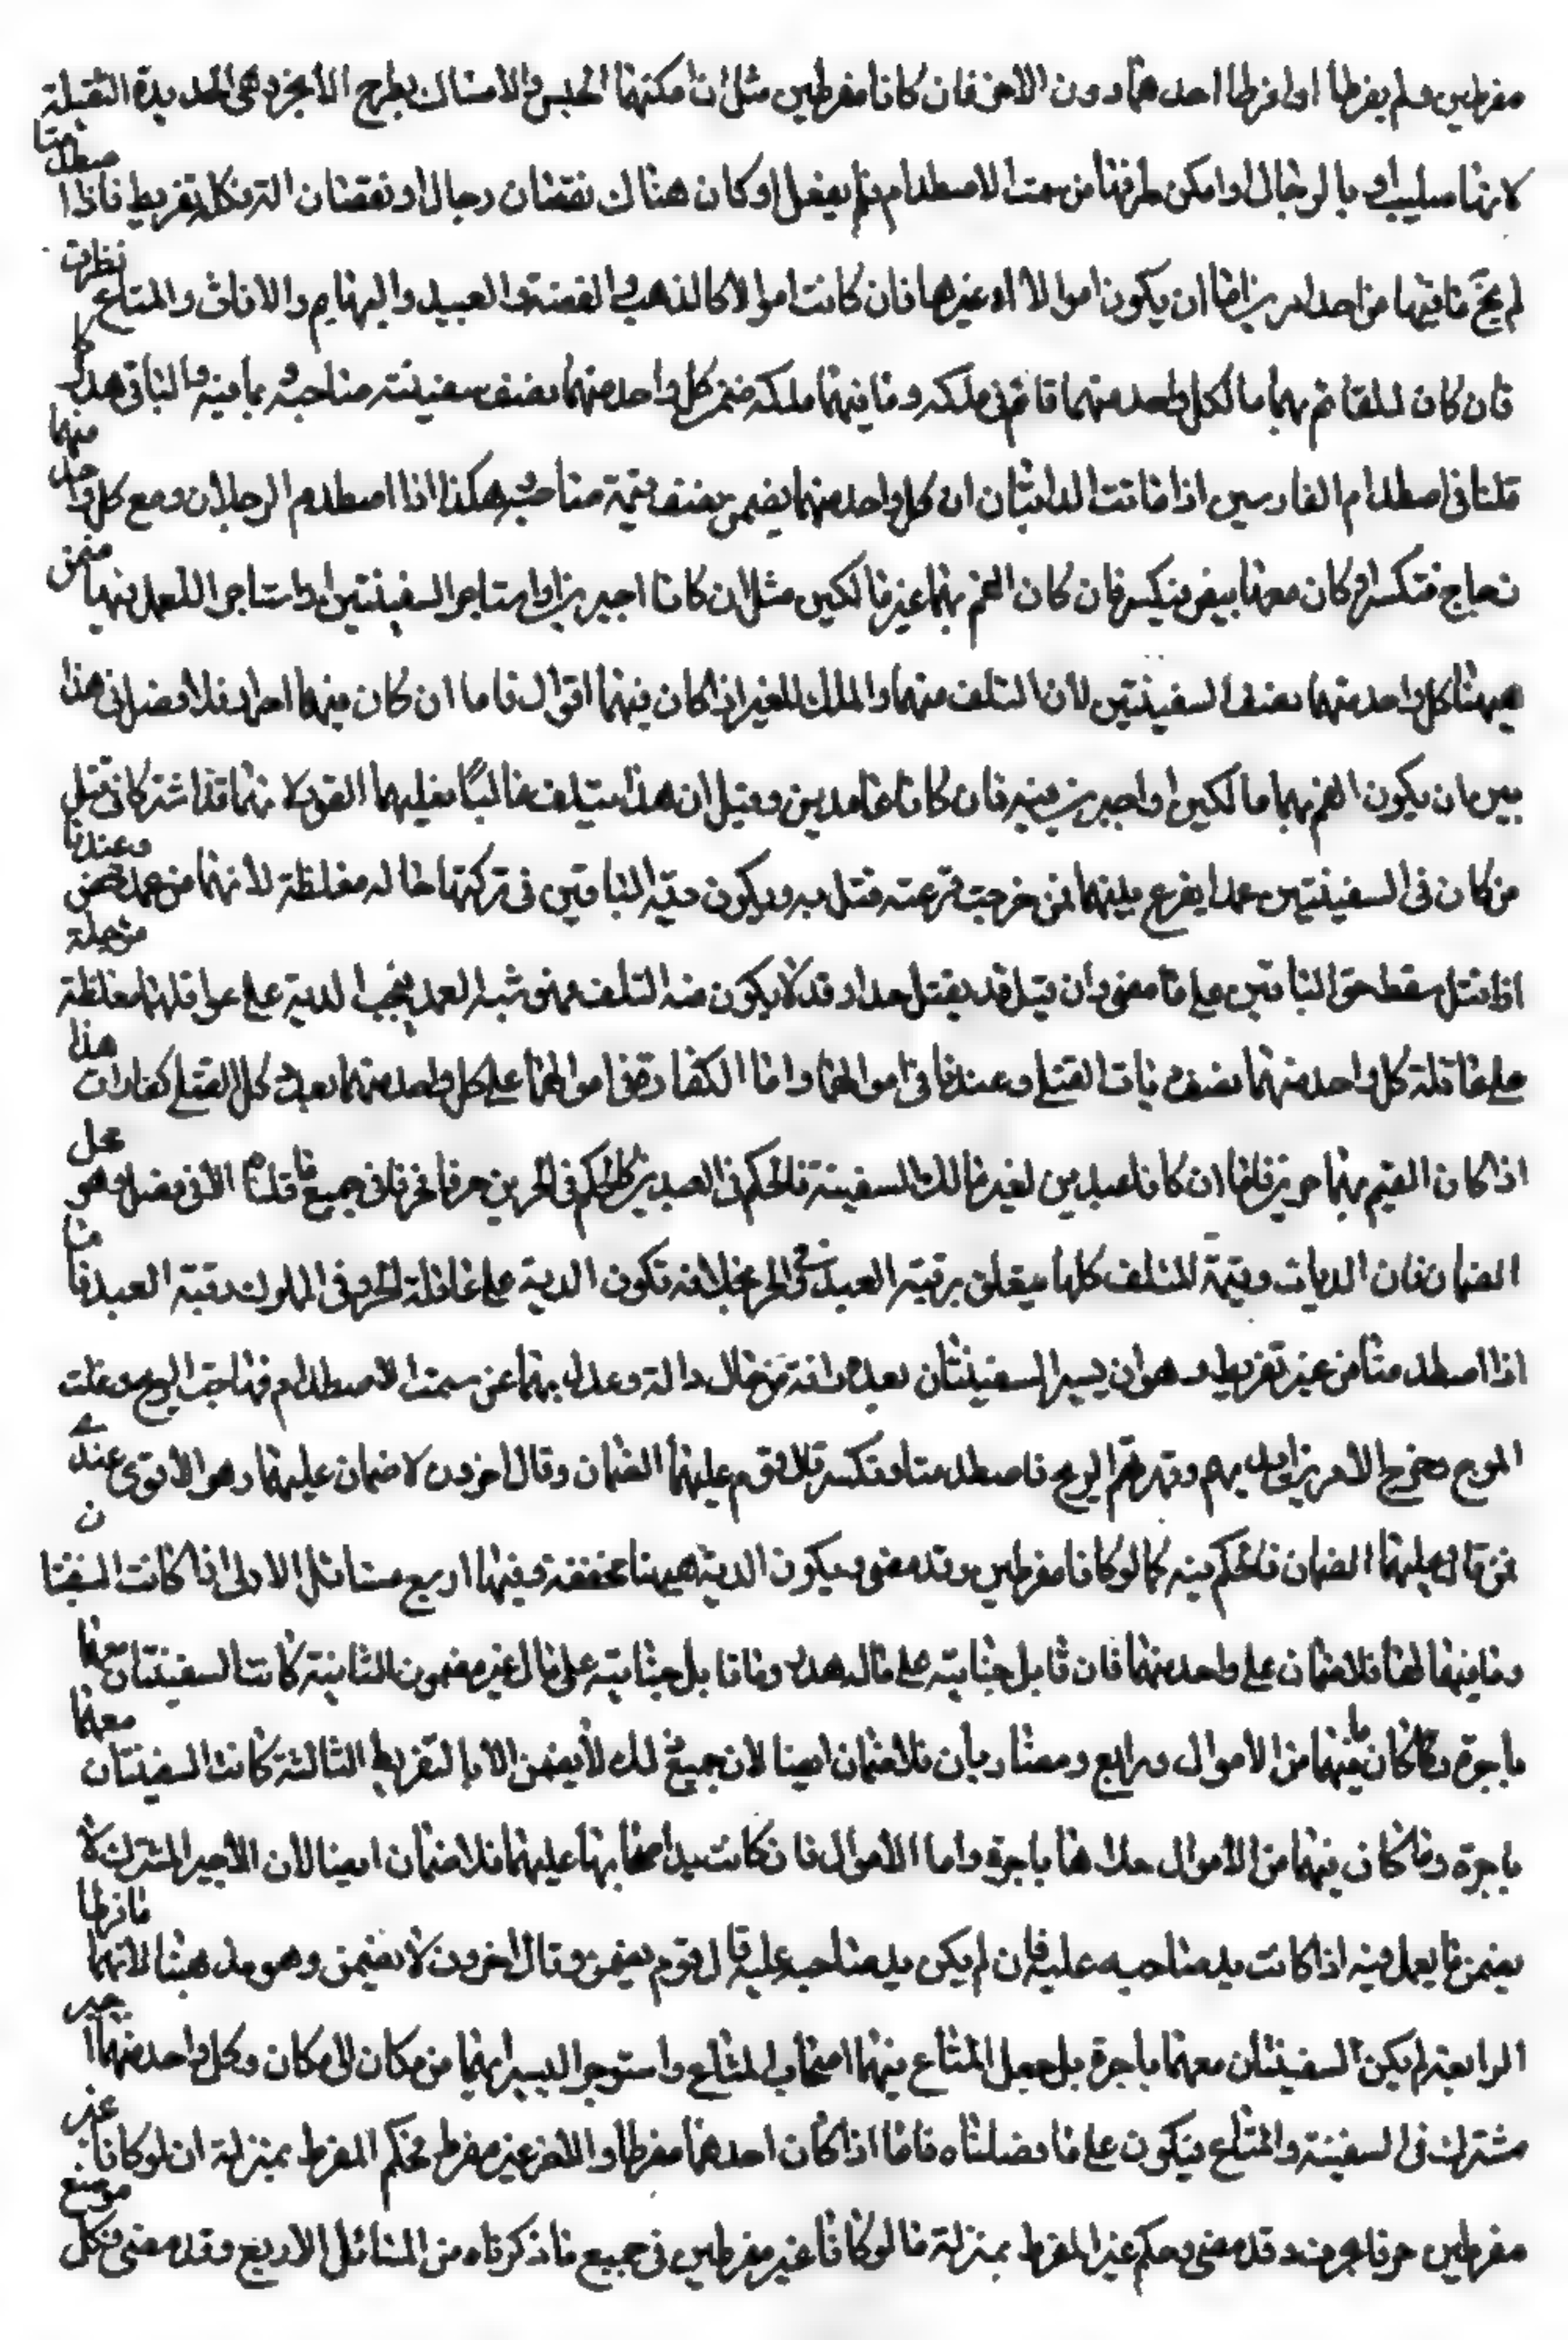 مفرطين ولم يفرطا او افرطا احدهما دون الاخر فان كانا مفرطين مثل ان امكنهما الحبس والامساك بطرح الانجر وهى الحديدة الثقيلة
او بالرجال او امكن طرفها من سمت الاصطدام فلم يفعل او كان هناك نقصان رجال او نقصان الة فكل تفريط فاذا اصطدمتا
لم يخل ما فيهما من احد امرين اما ان يكون اموالا او غيرها فان كانت اموالا كالذهب والفضة والعبيد والبهايم والاثاث والمتاع نظرت
فان كان القائم بهما مالكا لكل واحد منهما قائم فى ملكه وما فيهما ملكه ضمن كل واحد منهما نصف سفينته صاحبه وبما فيه والباقى هدر كما
قلنا فى اصطدام الفارسين اذا ماتت الدابتان ان كل واحد منهما يضمن نصف قيمة صاحبه وهكذا اذا اصطدم الرجلان ومع كل واحد منهما
زجاج فتكسر او كان معهما بيض فينكسر فان كان القيم بهما غير مالكين مثل ان كانا اجيرين او استاجر السفينتين او استاجرا للعمل فيهما ضمن
ههنا كل واحد منهما نصف السفينتين لان التلف منهما والملك للغير اذا كان فيهما اموال فاما ان كان فيهما احرار فلا فصل فى هذا
بين ان يكون القيم بهما مالكين او اجيرين فيه فان كانا عامدين وقيل ان هذا يتلف غالبا فعليهما القود لانهما قد اشتركا فى قتل
من كان فى السفينتين عمدا يقرع بينهما فمن خرجت قرعته قتل به ويكون دية الباقين فى تركتهما حالة مغلظة لانهما من عمد محض وعندنا
اذا قتل سقط حق الباقين على ما مضى وان قيل قد يقتل هذا وقد لا يكون منه التلف فهو شبه العمد فيجب الدية على عواقلهما مغلظة مؤجلة
على عاقلة كل واحد منهما نصف ديات القتلى وعندنا فى اموالهما واما الكفارة ففى اموالهما على كل واحد منهما بعدد كل القتلى كفارات هذا
اذا كان القيم بهما حرين فاما ان كانا عبدين لغير مالك السفينة فالحكم فى العبدين كالحكم فى الحرين حرفا فحرفا فى جميع ما قلناه الا فى فصل وهو محل
الضمان فان الديات وقيمة المتلف كلها يتعلق برقبة العبد وفى الحر بخلافه تكون الدية على عاقلة الحر وفى المملوك رقبة العبد فاما
اذا اصطدمتا من غير تفريط وهو ان يسير السفينتان بعد وافة من رجال والة وعدل بهما عن سمت الاصطدام فهاجت الريح وعلت
الموج وخرج الامر من ايديهم وقهرتهم الريح فاصطدمتا وتكسر قال قوم عليهما الضمان وقال اخرون لا ضمان عليهما وهو الاقوى عندى
فمن قال عليهما الضمان فالحكم فيه كما لو كانا مفرطين وقد مضى ويكون الدية ههنا مخففة وفيها اربع مسائل الاولى اذا كانت السفينتان
وما فيهما لهما فلا ضمان على واحد منهما فان قابل جنايته على ماله هدر وما قابل جنايته على مال غير مضمون الثانية كانت السفينتان معهما
باجرة وكان ما فيهما من الاموال ودايع ومضاربات فلا ضمان ايضا لان جميع ذلك لا يضمن الا بالتفريط الثالثة كانت السفينتان معهما
باجرة وما كان فيهما من الاموال حملاها باجرة واما الاموال فان كانت يد اصحابها عليهما فلا ضمان ايضا لان الاجير المشترك لا
يضمن ما يعمل فيه اذا كانت يد صاحبه عليه فان لم يكن يد صاحبه عليه قال قوم يضمن وقال اخرون لا يضمن وهو مذهبنا لانهما ما فرطا
الرابعة لم يكن السفينتان معهما باجرة بل جعل المتاع فيهما اصحاب المتاع واستوجرا ليسيرا بهما من مكان الى مكان وكل واحد منهما اجير
مشترك فى السفينة والمتاع فيكون على ما فصلناه فاما اذا كان احدهما مفرطا والاخر غير مفرط فحكم المفرط بمنزلة ان لو كانا
مفرطين حرفا بحرف وقد مضى وحكم غير المفرط بمنزلة ما لو كانا غير مفرطين فى جميع ما ذكرناه من المسائل الاربع وقد مضى فكل موضع